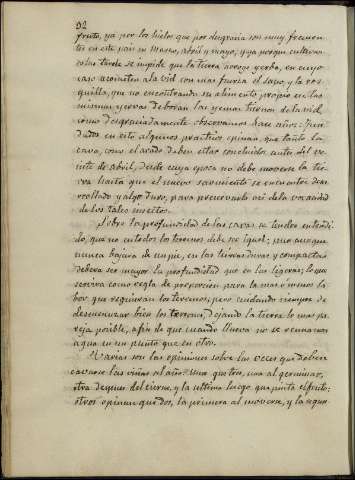 92
fruto, ya por los hielos que por desgracia son muy frecuen-
tes en este pais en Marzo, abril y mayo; y ya porque cultivan-
dolas tarde se impide que la tierra arroje yerba, en cuyo
caso acometen a la vid con mas furia el sapo, y la ros-
quilla, que no encontrando su alimento propio en las
mismas yervas devoran las yemas tiernas de la vid,
como desgraciadamente observamos hace años. Fun-
dados en esto algunos practicos opinan, que tanto la
cava, como el arado deben estar concluidos antes del ve-
inte de abril, desde cuya epoca no debe moverse la tie-
rra hasta que el nuevo sarmiento se encuentre desa-
rrollado y algo duro, para preservarlo asi de la voracidad
de los tales insectos.
Sobre la profundidad de las cavas se tendrá entendi-
do, que no en todos los terrenos debe ser igual; pues aunque
nunca bajara de un pie, en las tierras duras y compactas
debera ser mayor la profundidad que en las ligeras; lo que
servira como regla de proporcion para la mas o menos la-
bor que requieran los terrenos, pero cuidando siempre de
desmenuzar bien los terrones, dejando la tierra lo mas pa-
reja posible, a fin de que cuando llueva no se reuna mas
agua en un punto que en otro.
Varias son las opiniones sobre las veces que deben
cavarse las viñas al año: Unos que tres, una al germinar,
otra despues del cierne, y la ultima luego que pinta el fruto:
otros opinan que dos, la primera al moverse, y la segun-